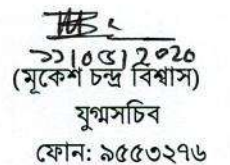 ১১/০৫/2020
(মূকেশ চন্দ্র বিশ্বাস)
যুগ্মসচিব
ফোন: ৯৫৫৩২৭৬